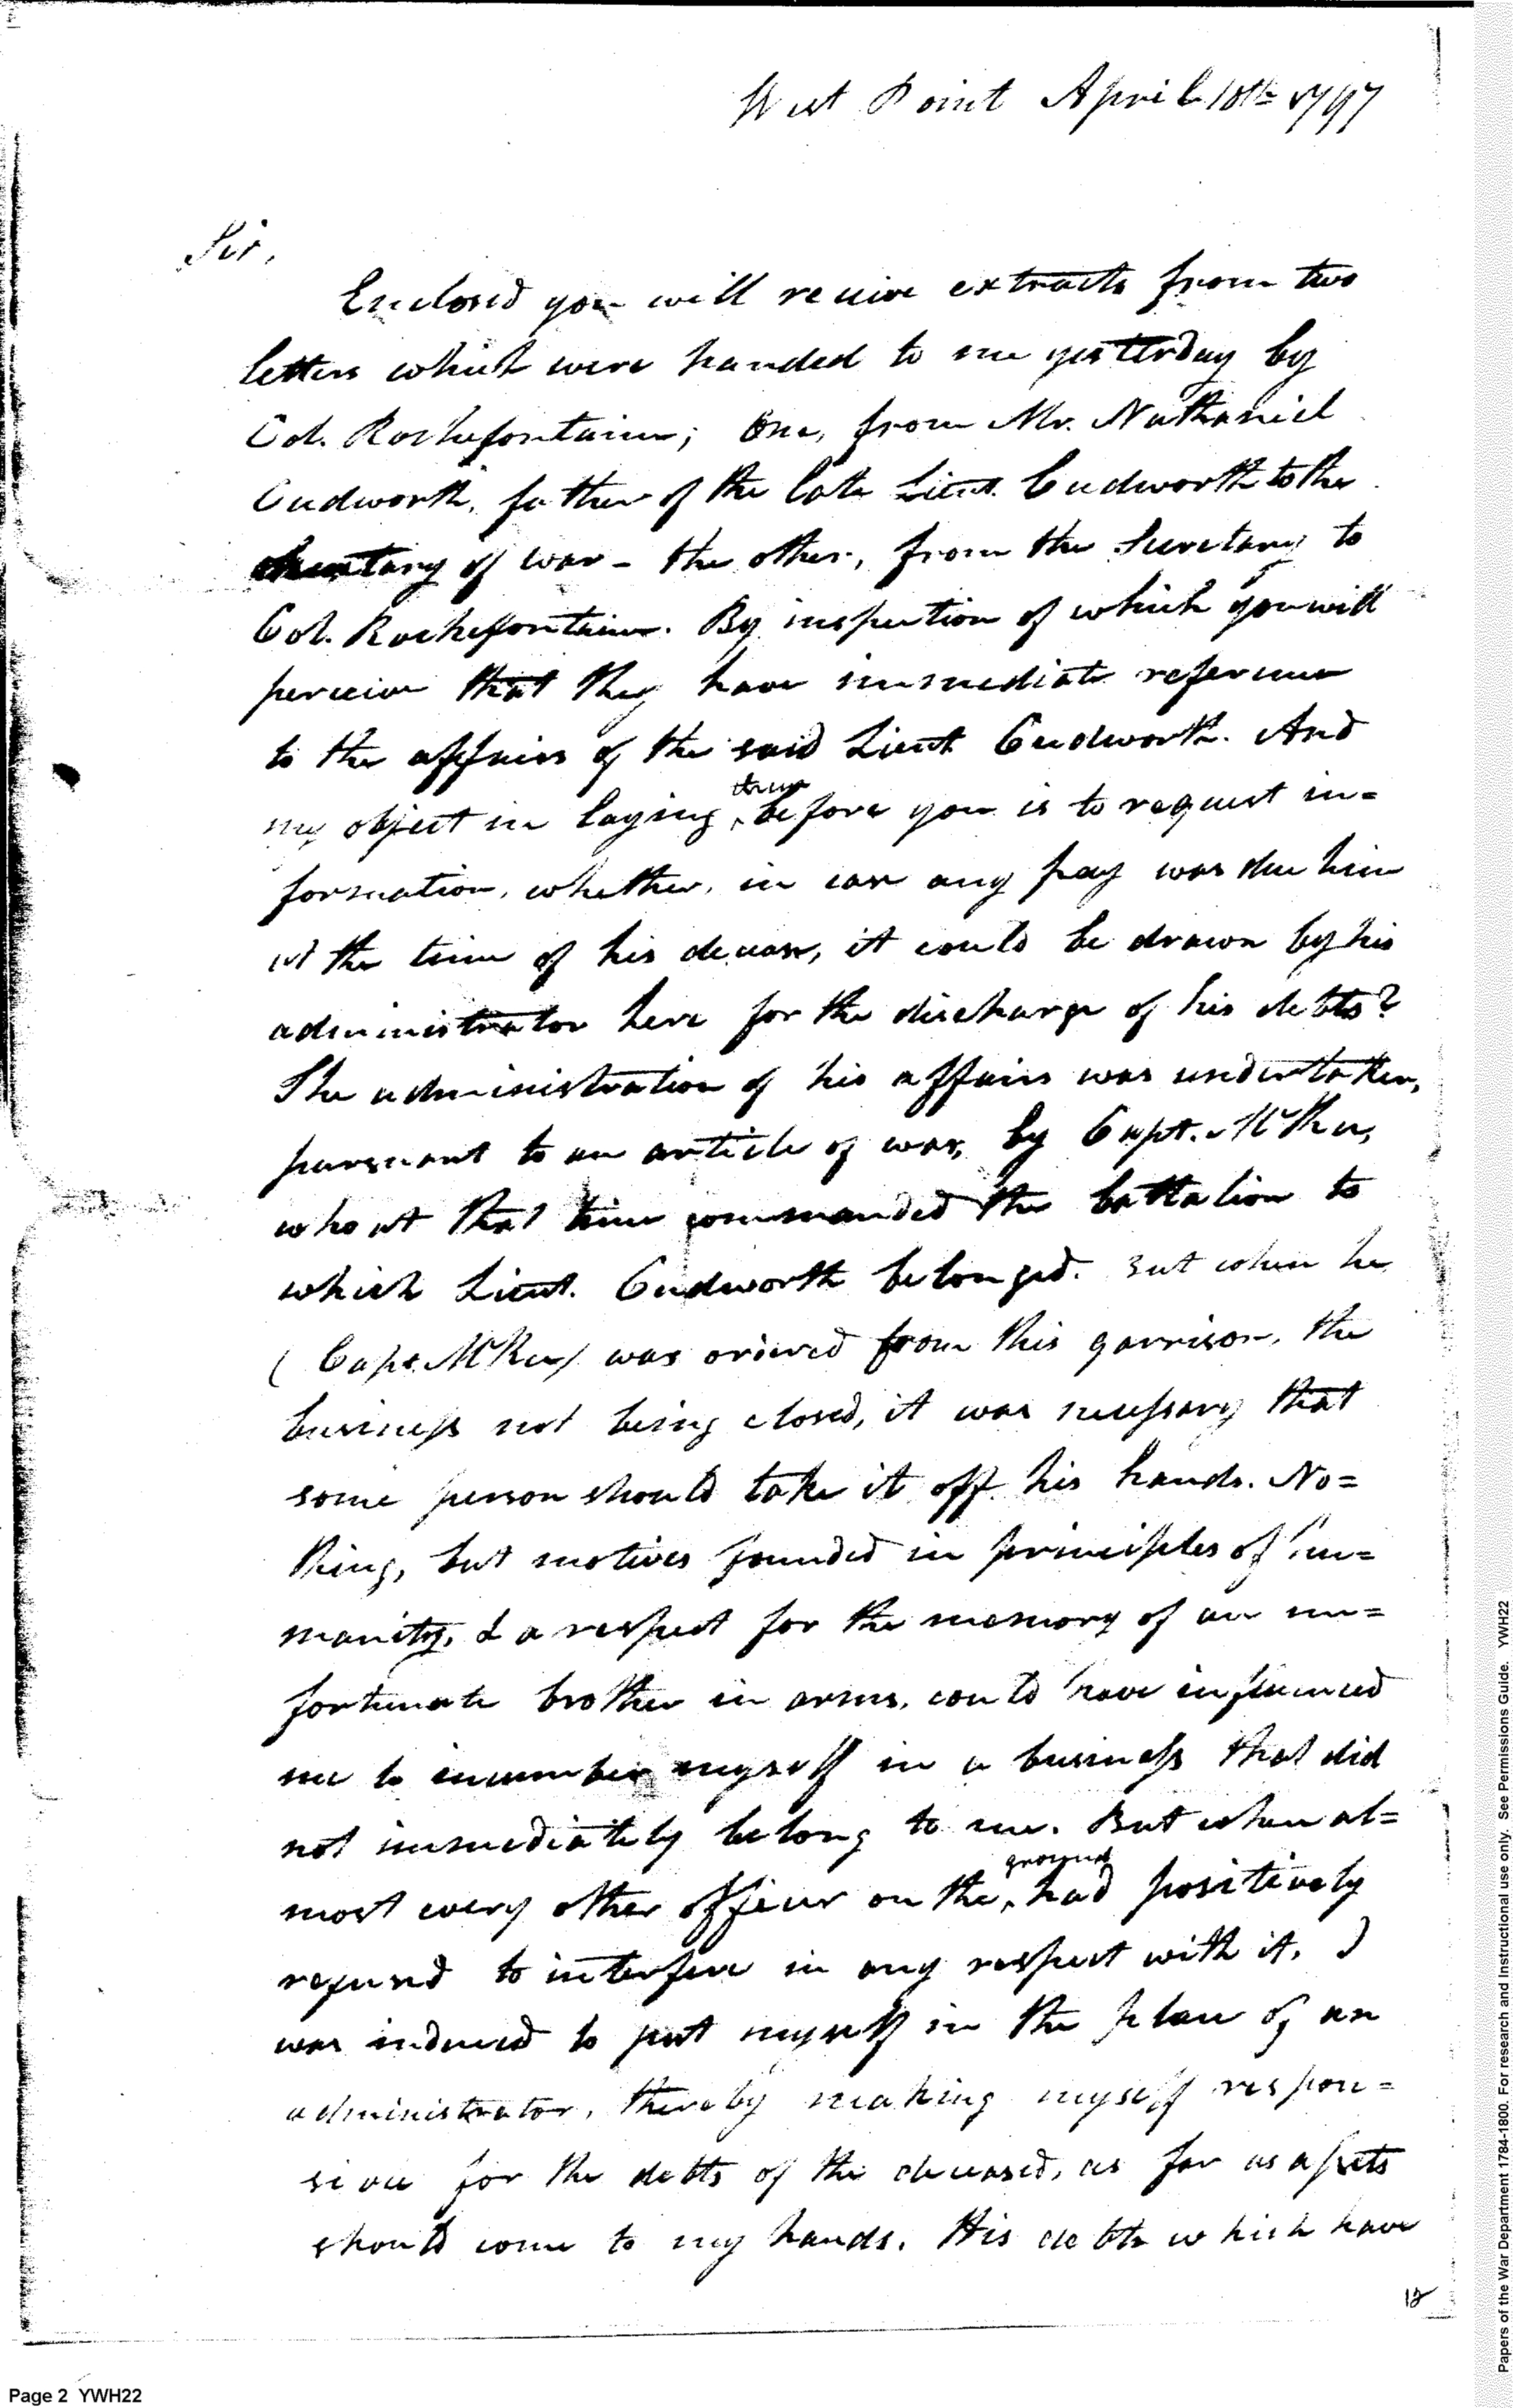 West Point April 18th 1797
Sir,
Enclosed you will receive extracts from two
letters which were handed to me yesterday by
Col. Rochefontaine; One, from Mr. Nathaniel
Cudworth, father of the late Lieut. Cudworth to the
Secretary of war - the other, from the Secretary to
Col. Rochefontaine. By inspection of which you will
perceive that they have immediate reference
to the affairs of the said Lieut Cudworth. And
my object in laying them before you is to request in=
formation, whether, in case any pay was due him
at the time of his decease, it could be drawn by his
administrator here for the discharge of his debts?
The administration of his affairs was undertaken,
pursuant to an article of war, by Capt. McRea,
who at that time commanded the battalion to
which Lieut. Cudworth belonged. But when he
(Capt McRea) was ordered from this garrison, the
business not being closed, it was necessary that
some person should take it off his hands. No=
thing, but motives founded in principles of hu=
manity, & a respect for the memory of an un=
fortunate brother in arms, could have influenced
me to incumber myself in a business that did
not immediately belong to me. But when al=
most every other officer on the ground had positively
refused to interfere in any respect with it, I
was induced to put myself in the place of an
administrator, thereby making myself respon=
sive for the debts of the deceased, as far as assets
should come to my hands. His debts which have
12
Page 2 YWH22
Papers of the War Department 1784-1800. For research and Instructional use only. See Permissions Guide. YWH22